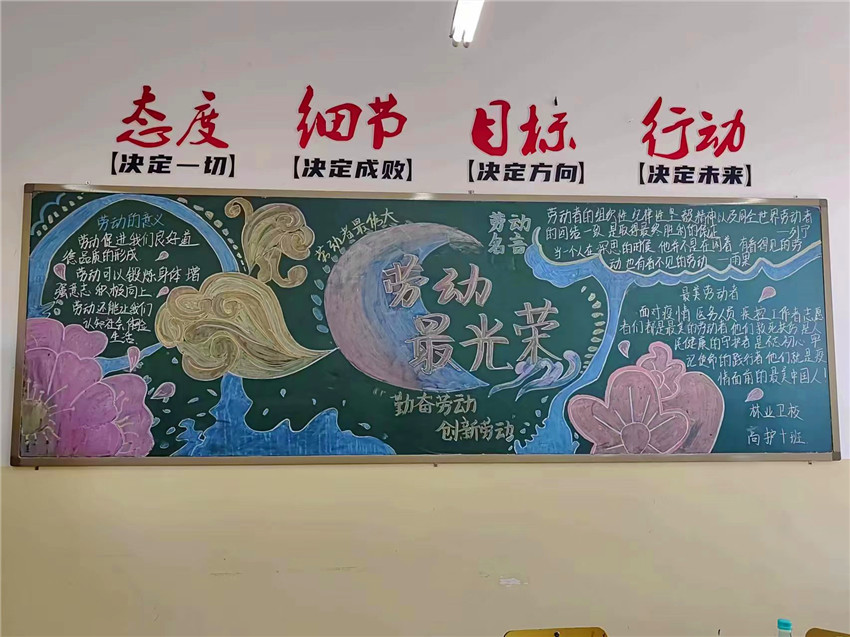 态度 细节 目标 行动
【决定一切】 【决定成败】 【决定方向】 【决定未来】
劳动的意义
劳动促进我们良好道
德品质的形成
劳动可以锻炼身体 增
强意志 积极向上
劳动还能让我们
认知社会 体验
生活
劳动者最伟大
劳动
最光荣
勤奋劳动
创新劳动
劳动
名言
劳动者的组织性 纪律性 坚毅精神以及同全世界劳动者
的团结一致 是取得最终胜利的保证 —列宁
当一个人在深思的时候 他并不是在闲着 有看得见的劳
动 也有看不见的劳动 —雨果
最美劳动者
面对疫情 医务人员 疾控工作者 志愿
者们都是最美的劳动者 他们
民健康的守护者 是
使命的践行者 他们就是疫
情面前的最美中国人!
林业卫校
高护十班